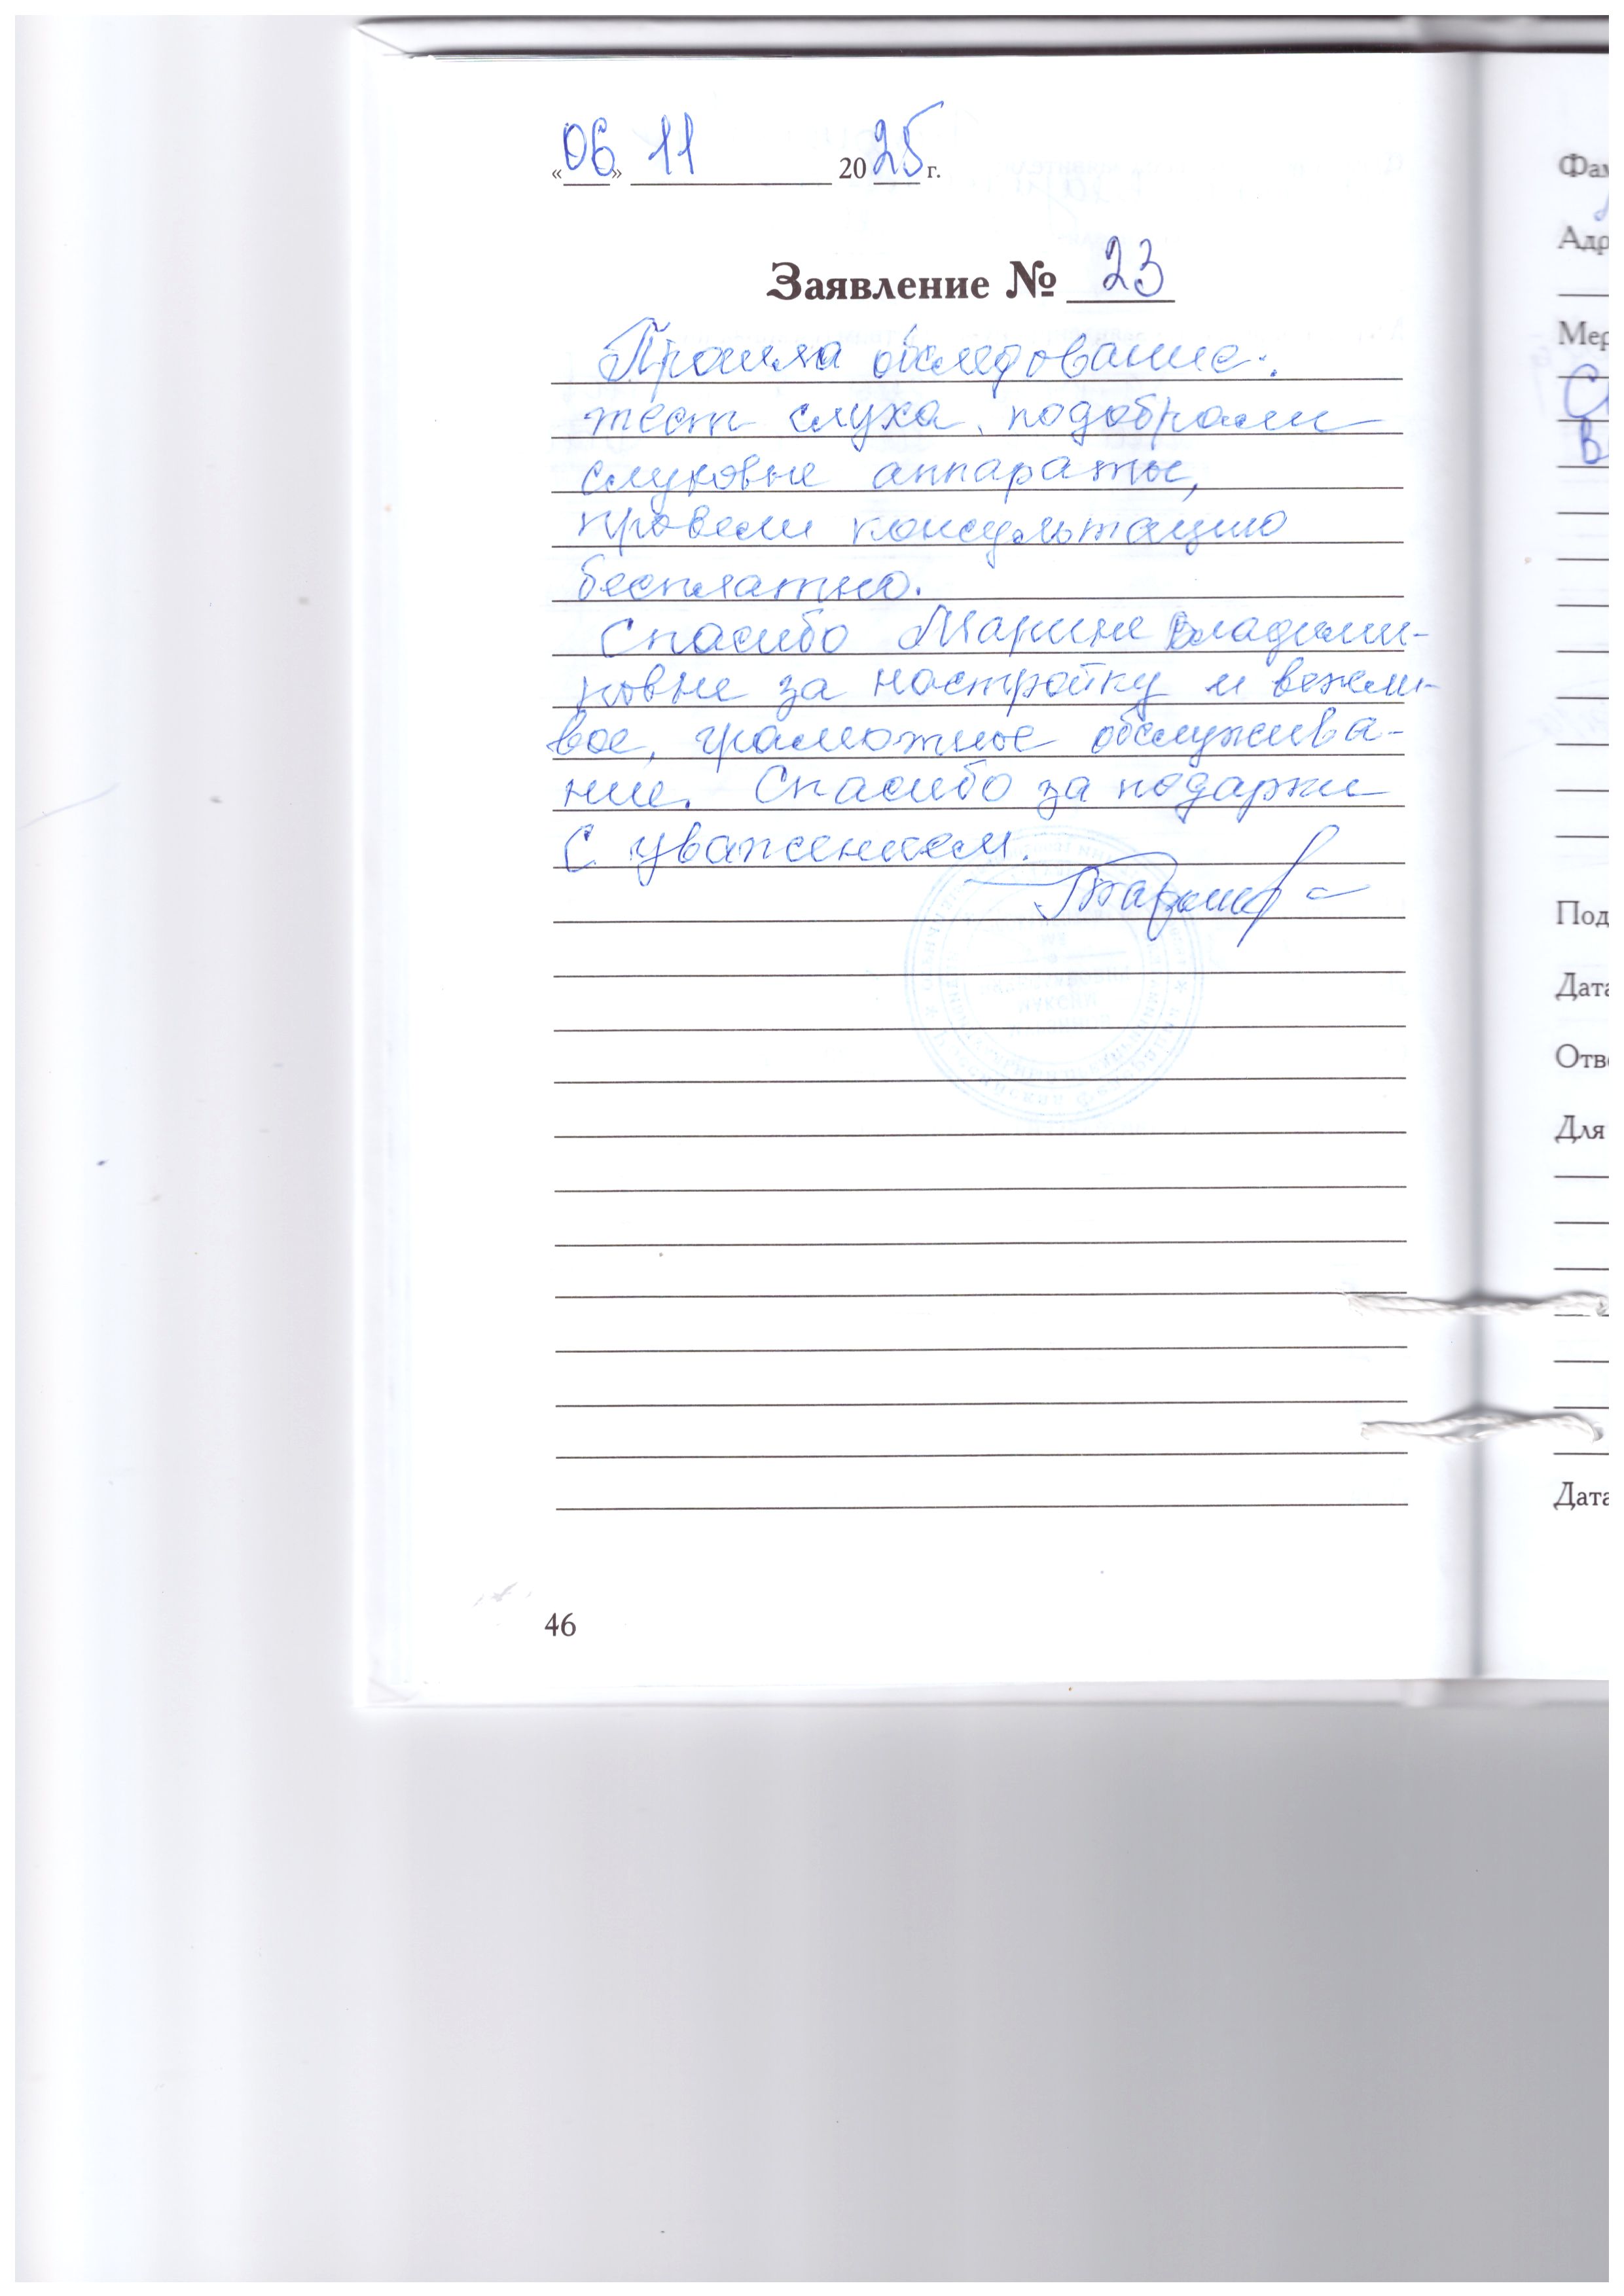 «06» 11 2025 г.
Заявление № 23
Прошла обследование:
тест слуха, подобрали
слуховые аппараты,
провели консультацию
бесплатно.
Спасибо Марине Владими-
ровне за настройку и вежли-
вое, грамотное обслужива-
ние. Спасибо за подарки
С уважением.
46
Фам
Адр
Мер
Под
Дата
Отве
Для
Дата